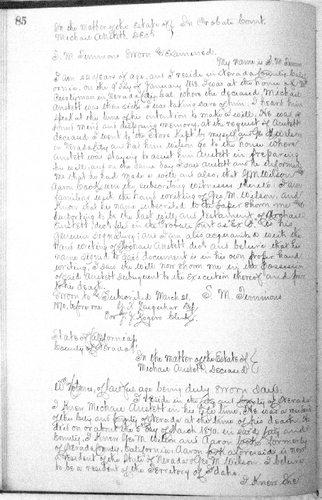 85
In the Matter of the Estate of } In Probate Court
Michael Austett Decd
S. M. Simmons Sworn & Examined.
My name is S. M. Simmons
I am 20 years of age, and I reside in Nevada County Cali
fornia. On the 8 day of January 1870 I was at the house of
in Nevada where the deceased Michael
Austett was then sick. I was taking care of him. I heard him
speak at the time of his intention to make a will. He was of
sound mind and disposing memory, at the request of Austett
deceased I went to the store kept by myself and
in and had him Wilson go to the house where
Austett was staying to assist him Austett in preparing
his will, and on the same day I saw Austett and he informed
me that he had made a will and also, that Geo M. Wilson and
Aaron Cook were the subscribing witnesses thereto. I am
familiar with the hand writing of Geo. M. Wilson, and
know that his name subscribed to the paper shown me &
purporting to be the last will and testament of Michael
Austett decd filed in the Probate Court as Ex "A" is his
genuine signature; and I am also acquainted with the
hand writing of Michael Austett decd and believe that his
name signed to said document is in his own proper hand
writing. I saw the will now shown me in the possession
of said Austett subsequent to the execution thereof and before
his death.
Sworn to & Subscribed March 21, S. M. Simmons
1870, before me G. K. Farquhar Clk
Per J. J. Rogers Clerk
State of California }
County of Nevada }
In the Matter of the Estate of }
Michael Austett Deceased }
of lawful age being duly Sworn Said.
I reside in the City and County of Nevada
I Knew Michael Austett in his life time. He was a resident
of the City and County of Nevada at the time of his death. He
died on or about the 5 day of March 1870. in said City and
County, I Know Geo M. Wilson and Aaron Cook formerly
of Nevada County California. Aaron Cook aforesaid is now
a resident of the State of Nevada. Geo M. Wilson I believe
to be a resident of the Territory of Idaho.
I Know the